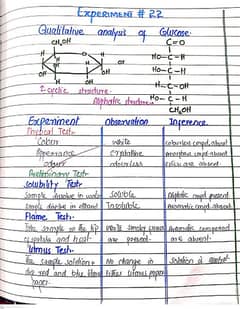 EXPERIMENT # 22
Qualitative analysis of Glucose.
CH₂OH
C=O
HO-C-H
HO-C-H
or
OH
H-C-OH
cyclic structure
HO-C-H
Aliphatic structure
CH₂OH
Experiment Observation Inference
Physical Test-
Color white colourless cmpd. absent
Apperance crystaline
odour odourless absent
Preliminary Test-
Solubility Test-
Sample dissolve in water Soluble Aliphatic cmpd present
Sample dissolve in ethanol Insoluble Aromatic cmpd absent
Flame Test-
Take sample on the tip Aromatic compound
of spatula and heat are present. are absent.
Litmus Test-
sample solution + No change in Solution is neutral.
dip red and blue litmus litmus paper
paper.